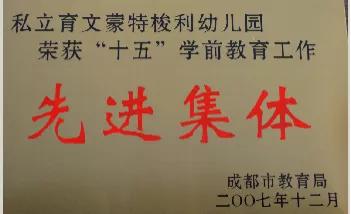 私立育文蒙特梭利幼儿园
荣获“十五”学前教育工作
先进集体
成都市教育局
二〇〇七年十二月